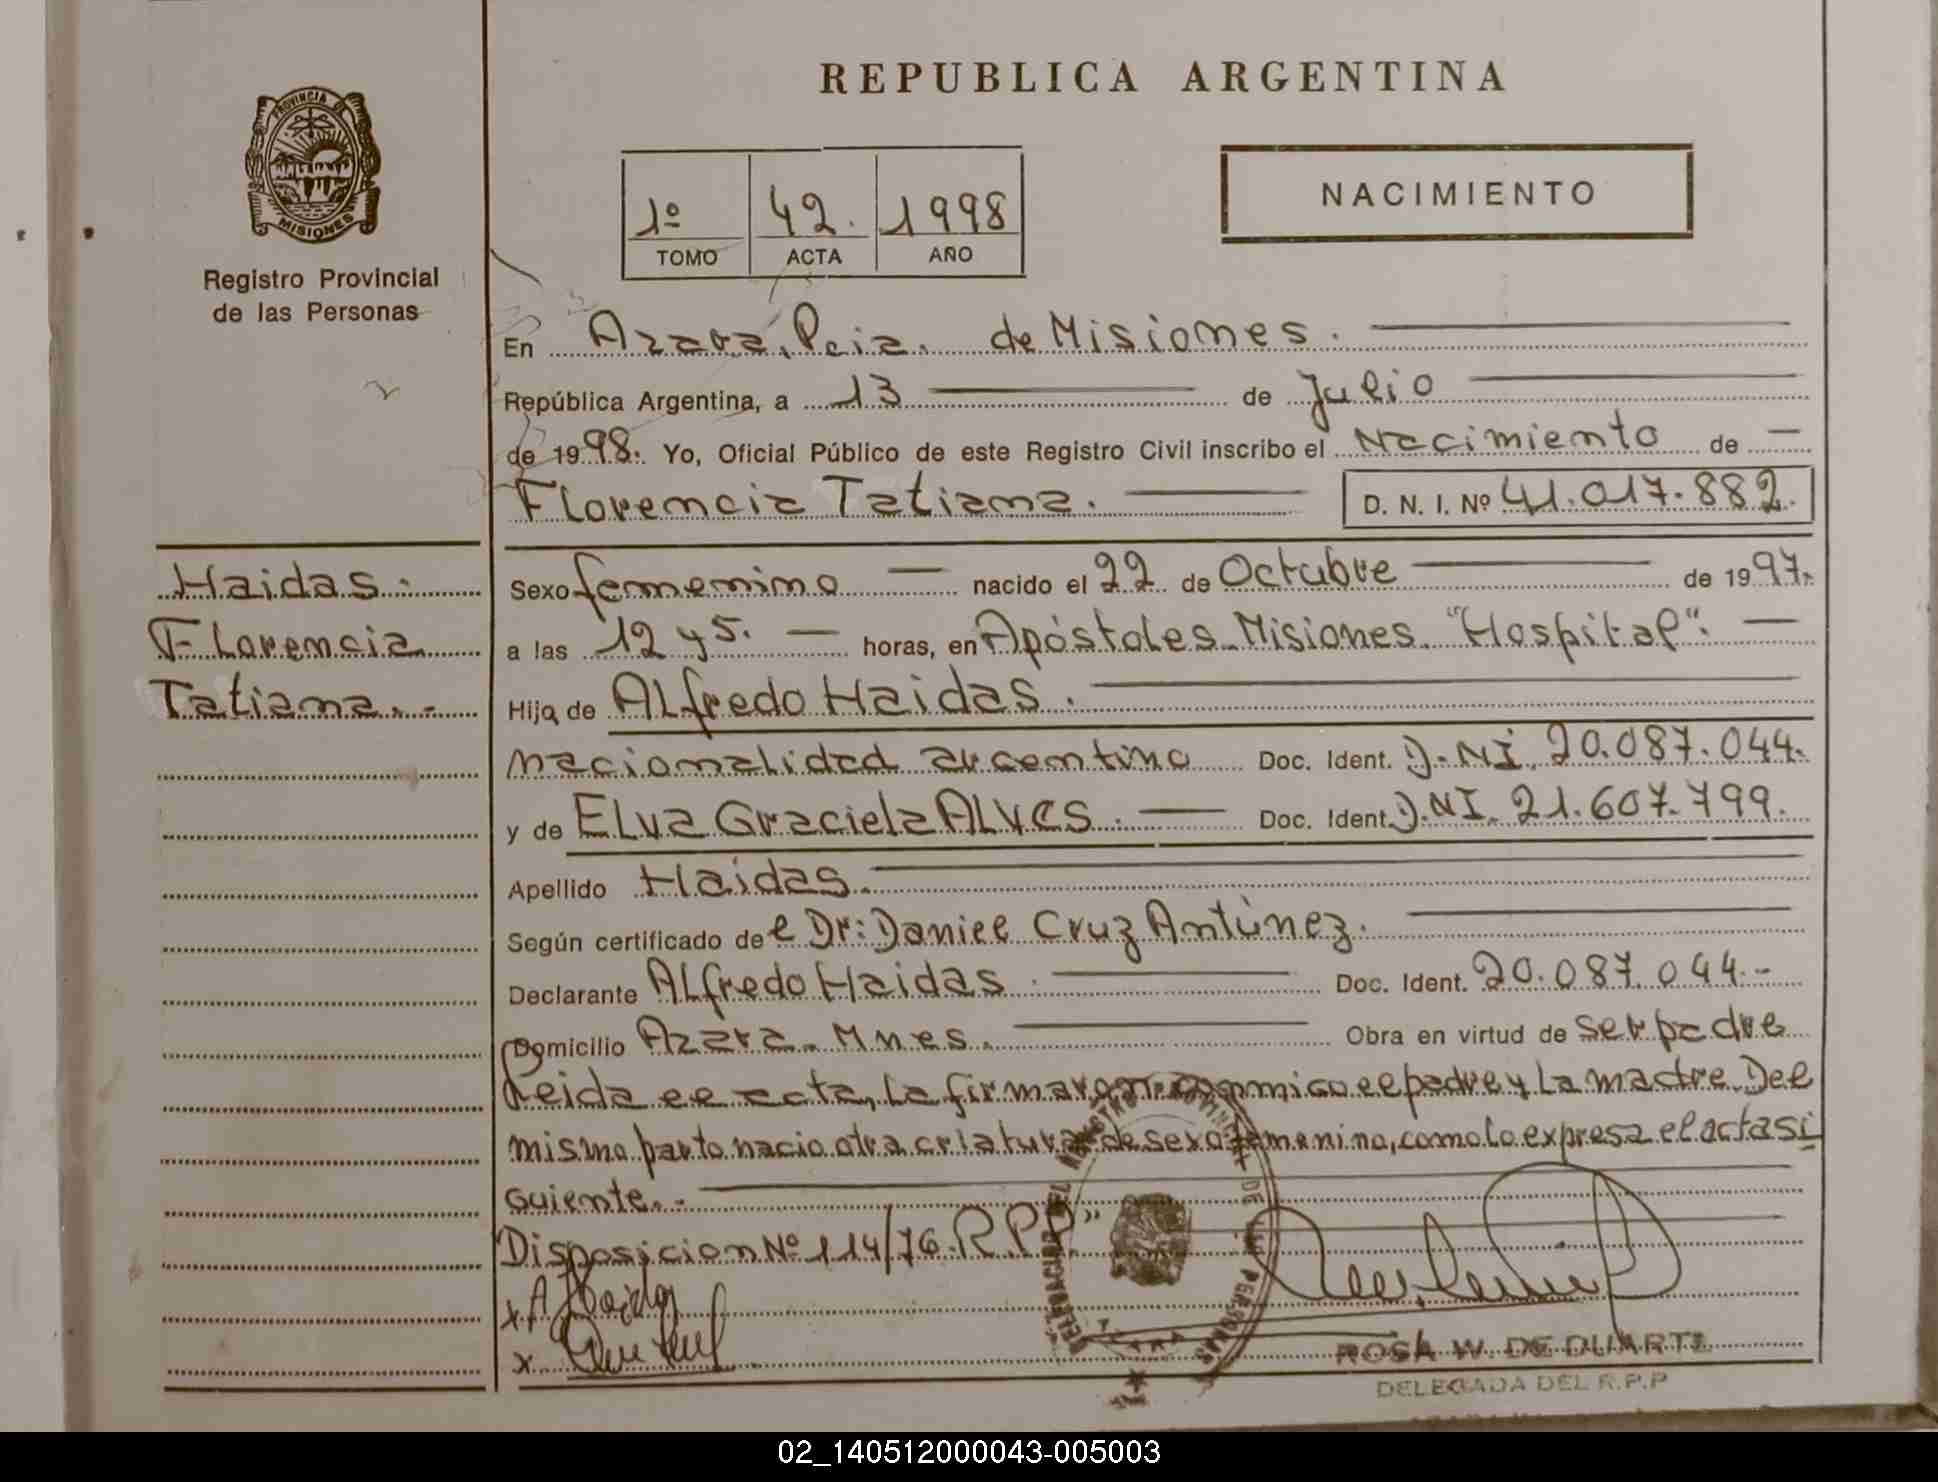 PROVINCIA DE
MISIONES
Registro Provincial
de las Personas
REPUBLICA ARGENTINA
1º 42. 1998
TOMO ACTA AÑO
NACIMIENTO
En Azara, Pcia. de Misiones.
República Argentina, a 13 de Julio
de 1998. Yo, Oficial Público de este Registro Civil inscribo el Nacimiento de
Florencia Tatiana. D. N. I. Nº 41.017.882.
Haidas.
Florencia
Tatiana.-
Sexo femenino nacido el 22 de Octubre de 1997.
a las 12 y 5. horas, en Apóstoles Misiones. "Hospital".
Hija de Alfredo Haidas.
nacionalidad argentina Doc. Ident. D.NI. 20.087.044.
y de Elva Graciela Alves. Doc. Ident. D.NI. 21.607.799.
Apellido Haidas.
Según certificado del Dr: Daniel Cruz Antúnez.
Declarante Alfredo Haidas. Doc. Ident. 20.087.044.-
Domicilio Azara. Mnes. Obra en virtud de ser padre
Leida el acta, la firmaron conmigo el padre y la madre. Del
mismo parto nacio otra criatura de sexo femenino, como lo expresa el acta si
guiente.-
Disposicion Nº 114/76. R.P.P."
x A Haidas
x
DELEGACION DEL REGISTRO PROVINCIAL DE LAS PERSONAS
ROSA W. DE DUARTE
DELEGADA DEL R.P.P
02_140512000043-005003